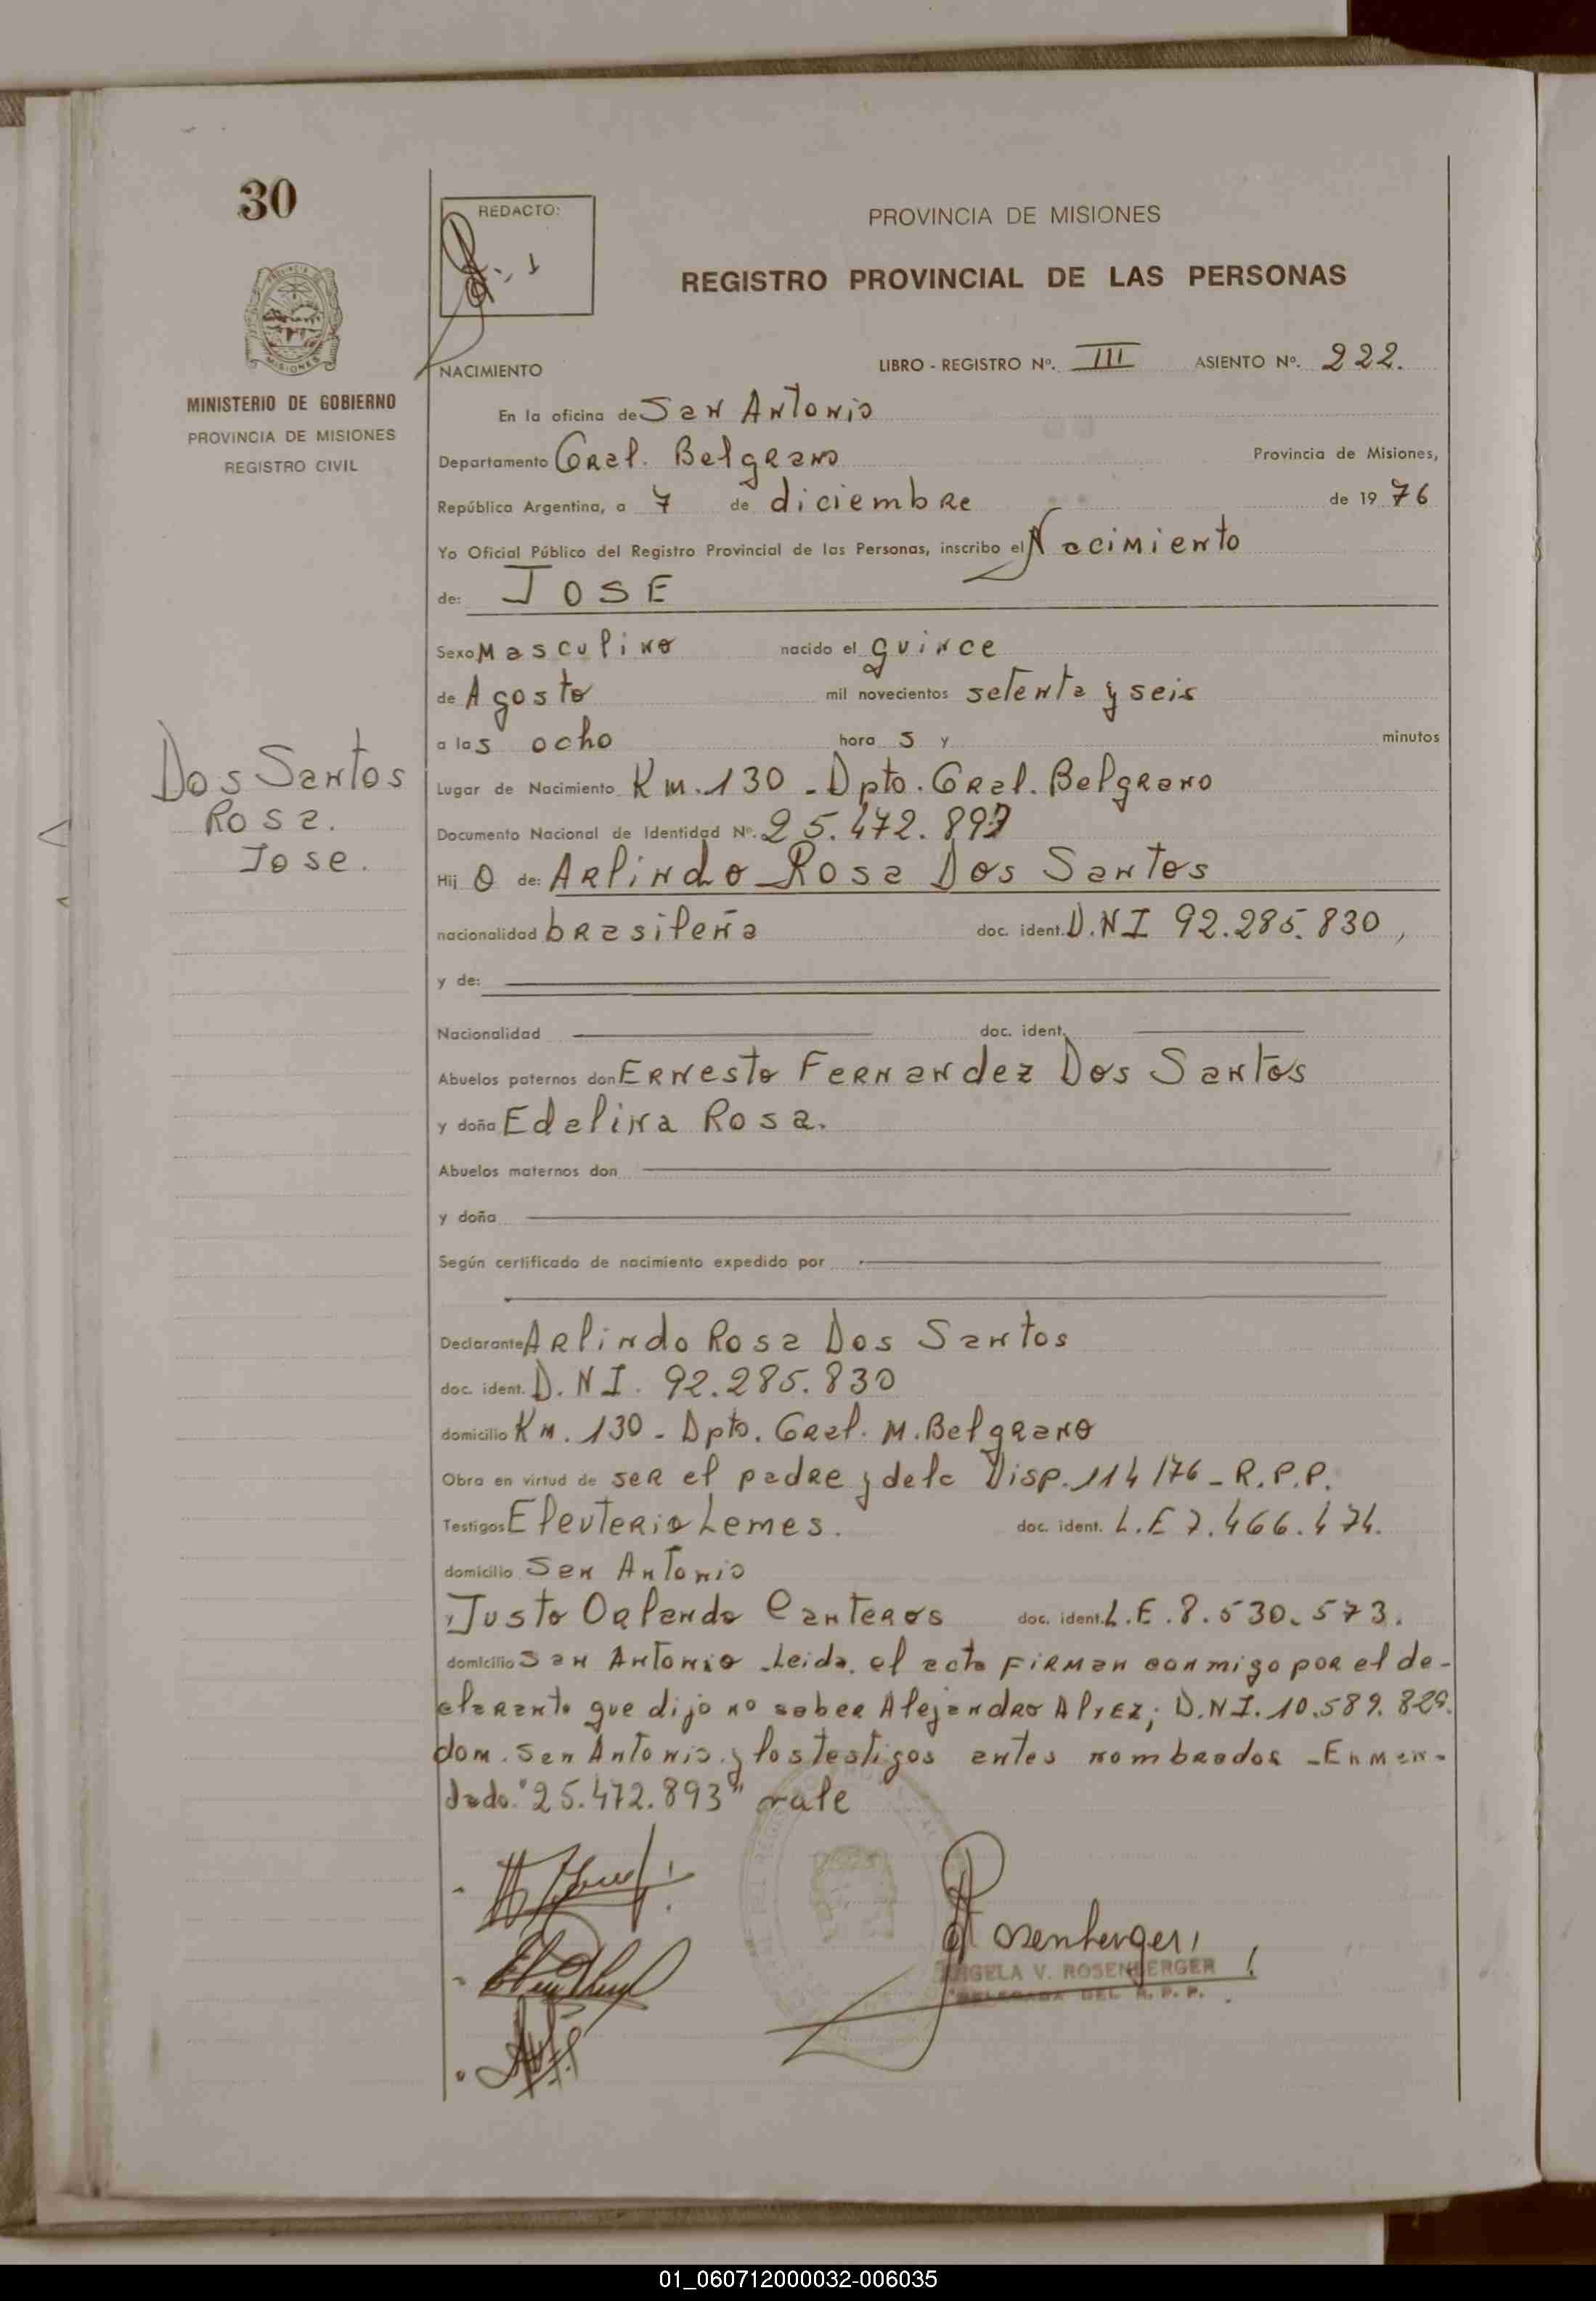 30
REDACTO:
PROVINCIA DE MISIONES
REGISTRO PROVINCIAL DE LAS PERSONAS
MISIONES
MINISTERIO DE GOBIERNO
PROVINCIA DE MISIONES
REGISTRO CIVIL
NACIMIENTO
LIBRO - REGISTRO Nº. III ASIENTO Nº. 222.
En la oficina de San Antonio
Departamento Gral. Belgrano Provincia de Misiones,
República Argentina, a 7 de diciembre de 1976
Yo Oficial Público del Registro Provincial de las Personas, inscribo el Nacimiento
de: JOSE
Sexo Masculino nacido el quince
de Agosto mil novecientos setenta y seis
a las ocho hora s y minutos
Lugar de Nacimiento Km. 130 - Dpto. Gral. Belgrano
Dos Santos
Rosa.
Jose.
Documento Nacional de Identidad Nº. 25.472.893
Hij o de: Arlindo Rosa Dos Santos
nacionalidad brasileña doc. ident. D.N.I 92.285.830,
y de:
Nacionalidad doc. ident.
Abuelos paternos don Ernesto Fernandez Dos Santos
y doña Edelina Rosa.
Abuelos maternos don
y doña
Según certificado de nacimiento expedido por
Declarante Arlindo Rosa Dos Santos
doc. ident. D.N.I. 92.285.830
domicilio Km. 130 - Dpto. Gral. M. Belgrano
Obra en virtud de ser el padre y de la Disp. 114/76 - R.P.P.
Testigos Eleuterio Lemes. doc. ident. L.E 7.466.474.
domicilio San Antonio
y Justo Orlando Canteros doc. ident. L.E. 8.530.573.
domicilio San Antonio. Leida el acta firman conmigo por el de-
clarante que dijo no saber Alejandro D.N.I. 10.589.829.
dom. San Antonio. y los testigos antes nombrados - Enmen-
dado: "25.472.893" vale
Rosenberger
ANGELA V. ROSENBERGER
DELEGADA DEL R. P. P.
01_060712000032-006035